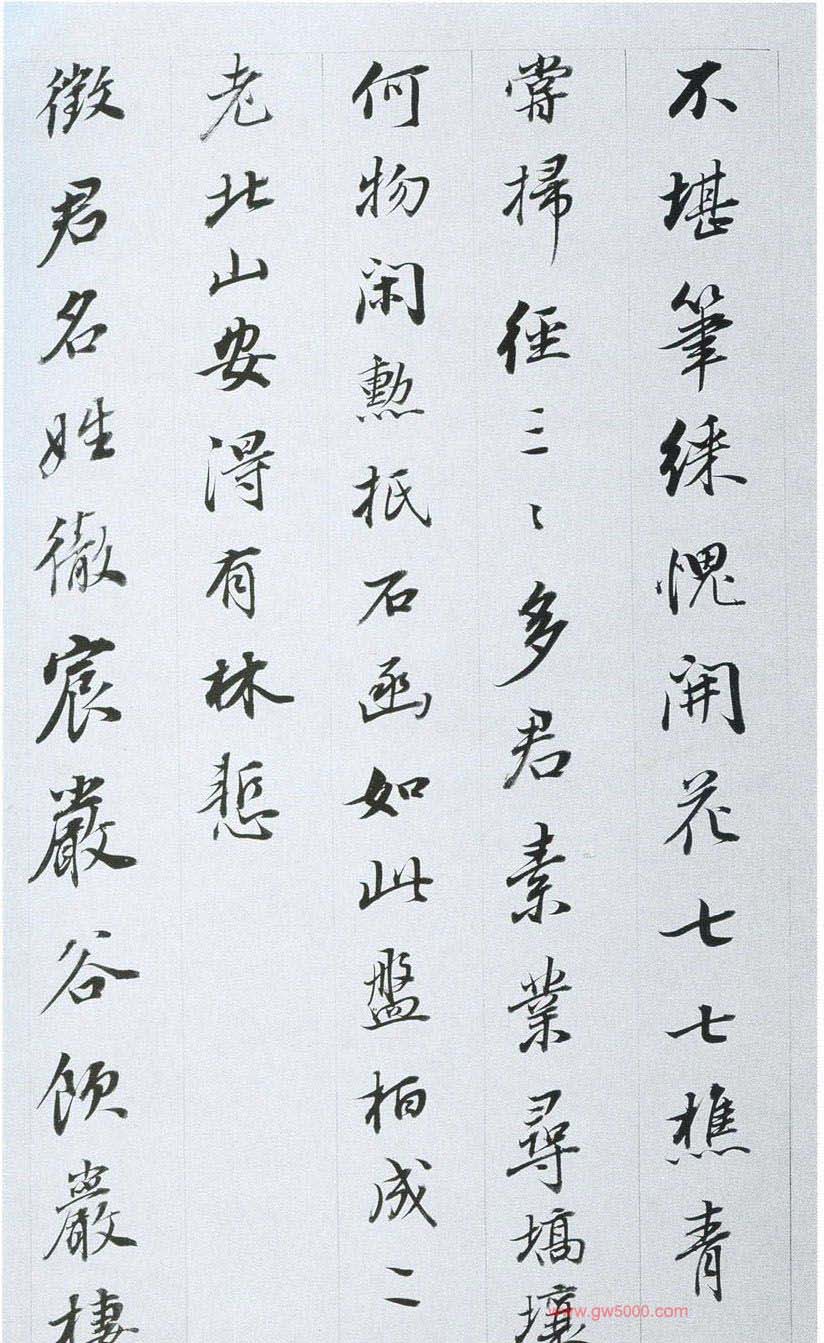 不堪筆綵愧開花七七樵青
嘗掃徑三〻多君素業尋墳壤
何物閑勲抵石函如此盤桓成二
老北山安得有林慙
徵君名姓徹宸嚴谷飲巖棲
www.gw5000.com